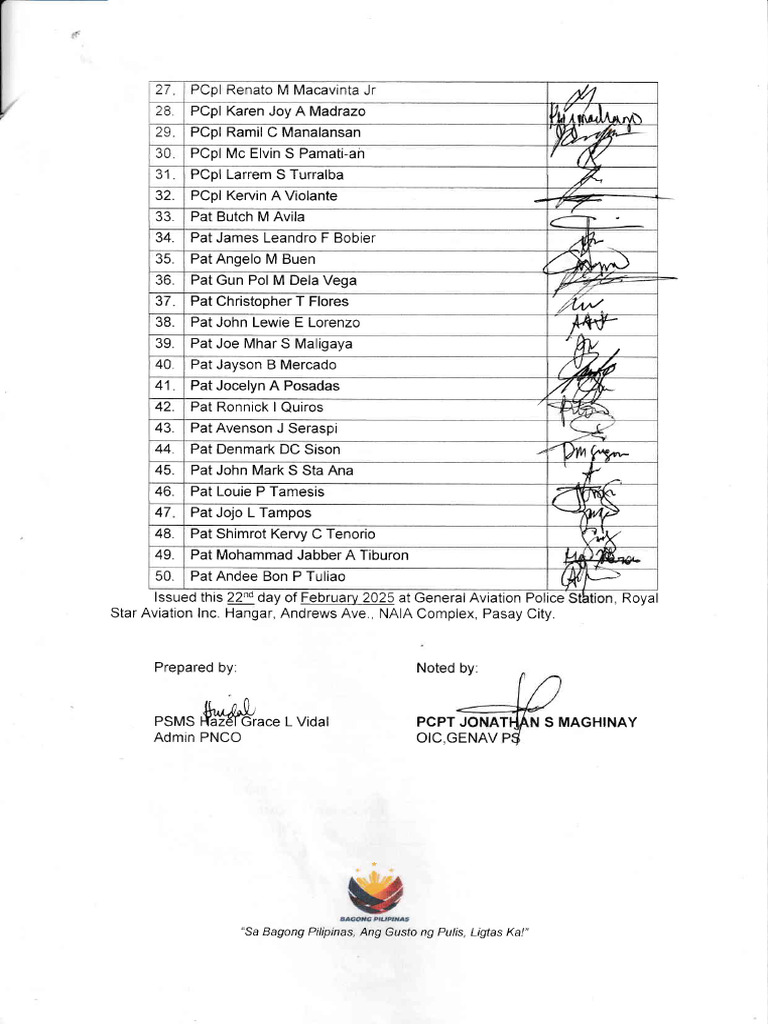 27. PCpl Renato M Macavinta Jr
28. PCpl Karen Joy A Madrazo
29. PCpl Ramil C Manalansan
30. PCpl Mc Elvin S Pamati-an
31. PCpl Larrem S Turralba
32. PCpl Kervin A Violante
33. Pat Butch M Avila
34. Pat James Leandro F Bobier
35. Pat Angelo M Buen
36. Pat Gun Pol M Dela Vega
37. Pat Christopher T Flores
38. Pat John Lewie E Lorenzo
39. Pat Joe Mhar S Maligaya
40. Pat Jayson B Mercado
41. Pat Jocelyn A Posadas
42. Pat Ronnick I Quiros
43. Pat Avenson J Seraspi
44. Pat Denmark DC Sison
45. Pat John Mark S Sta Ana
46. Pat Louie P Tamesis
47. Pat Jojo L Tampos
48. Pat Shimrot Kervy C Tenorio
49. Pat Mohammad Jabber A Tiburon
50. Pat Andee Bon P Tuliao
Issued this 22nd day of February 2025 at General Aviation Police Station, Royal
Star Aviation Inc. Hangar, Andrews Ave., NAIA Complex, Pasay City.
Prepared by: Noted by:
PSMS Hazel Grace L Vidal PCPT JONATHAN S MAGHINAY
Admin PNCO OIC,GENAV PS
BAGONG PILIPINAS
"Sa Bagong Pilipinas, Ang Gusto ng Pulis, Ligtas Ka!"